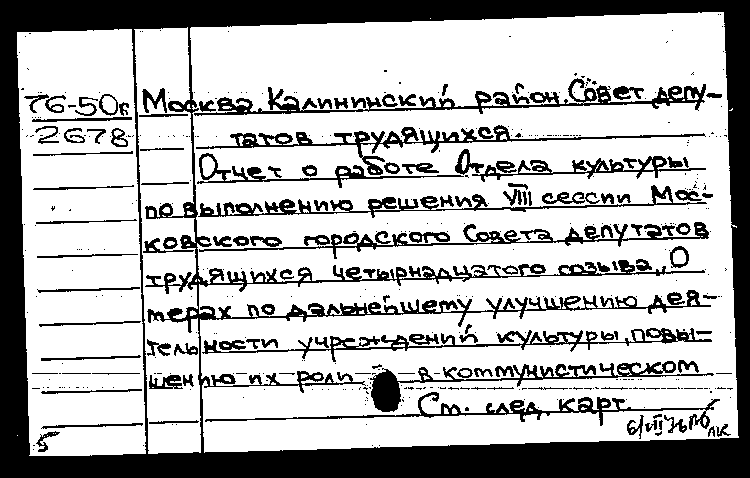 76-50к Москва. Калининский район. Совет депу-
2678 татов трудящихся.
Отчет о работе Отдела культуры
по выполнению решения VIII сессии Мос-
ковского городского Совета депутатов
трудящихся четырнадцатого созыва „О
мерах по дальнейшему улучшению дея-
тельности учреждений культуры, повы-
шению их роли в коммунистическом
См. след. карт.
5